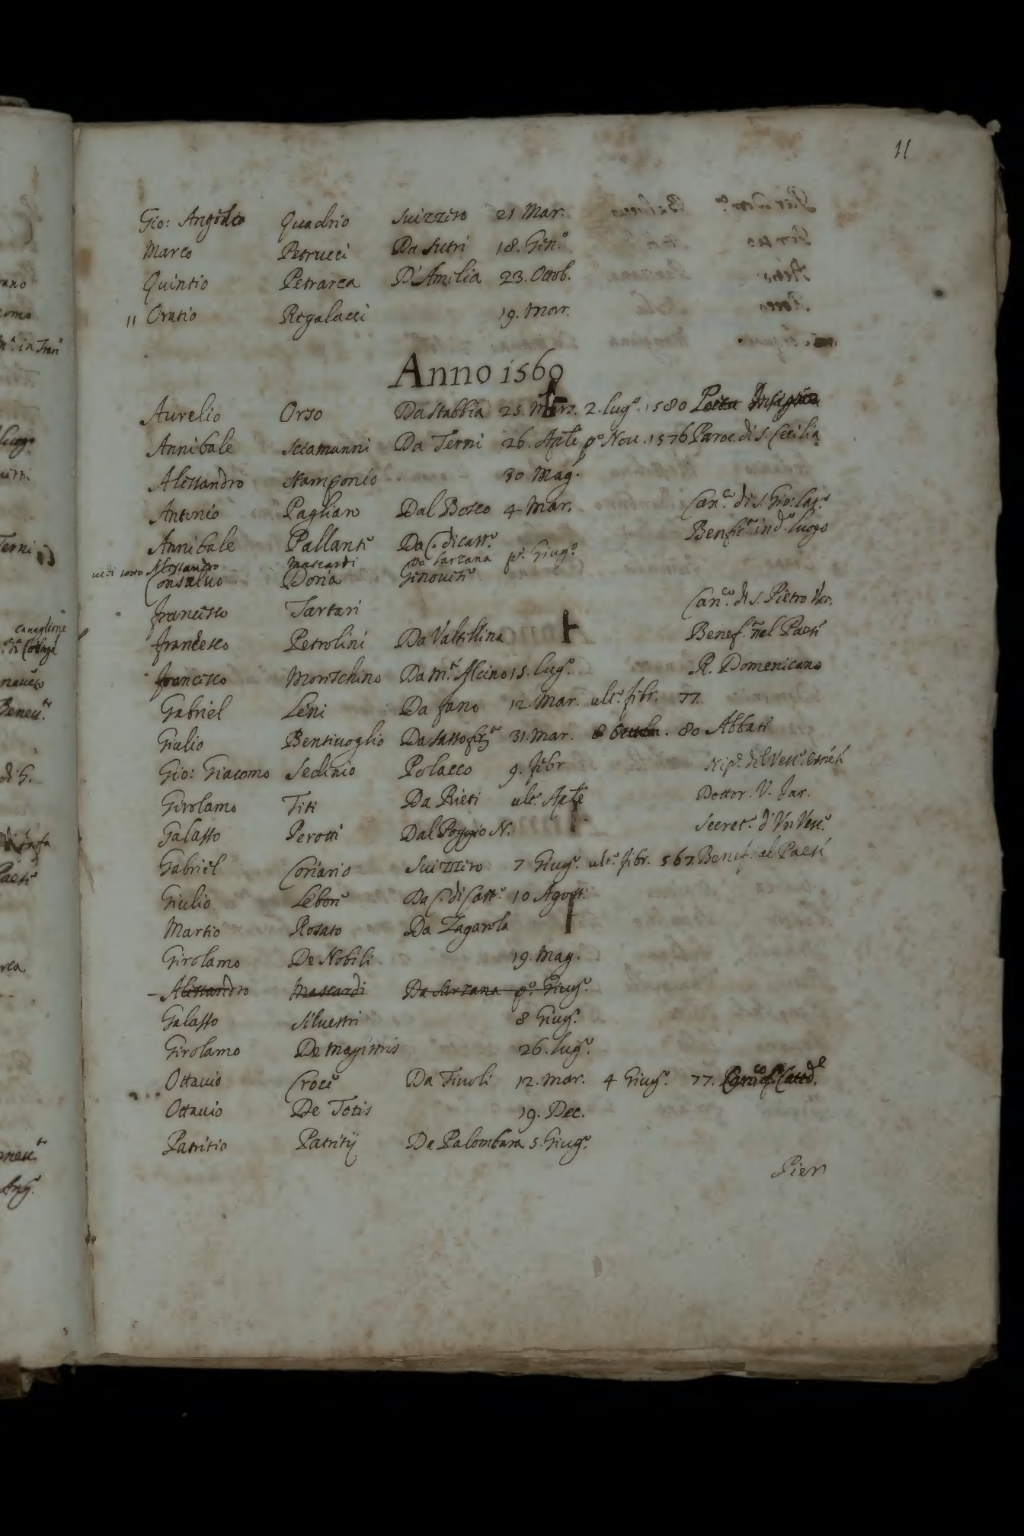 11
Gio: Angelo Quadrio Suizzero 21 Mar.
Marco Petrucci Da Sutri 18. Giu.º
Quintio Petrarca D'Amelia 23. Ottob.
11 Oratio Regalacci 19. Mar.
Anno 1569
Aurelio Orso Da stabbia 25. Marz. 2. lug.º 1580 Poeta Insigne
Annibale Sciamanni Da Terni 26. Aple pº Nou. 1576 Paroc. di S. Cecilia
Alessandro Stamponio 30 Mag.º
Antonio Pagliaro Dal Bosco 4 Mar. Can.co di S. Gio: Lat.º
Annibale Pallante Da C. di cast.º Benef.to in d.º luogo
vedi sotto Alessandro Mascardi Da Sarzana pº. Giug.º
Consaluo Doria Genouese
Francesco Tartari Can.co di S. Pietro
Francesco Petrolini Da Valtellina Benef. nel Paese
Francesco Da m.te Alcino 15. lug.º R. Domenicano
Gabriel Leni Da Fano 12. Mar. ult.º febr. 77
Giulio Bentiuoglio Da 31. Mar. 80 Abbate
Gio: Giacomo Sedinio Polacco 9. febr Nip.e del Vesc.º
Girolamo Titi Da Rieti ult.º Aple Dottor. V. Jur.
Galasso Perotti Dal Poggio N. Secret.º d'Vn Vesc.º
Gabriel Coriario Suizzero 7 Giug.º ult.º febr. 567 Benef. al Paese
Giulio Lebone Da C. di Cast.º 10 Agost.
Martio Rosato Da Zagarola
Girolamo De Nobili 19. Mag.
- Alessandro Mascardi Da Sarzana pº. Giug.º
Galasso Siluestri 8 Giug.º
Girolamo De Magistris 26. lug.º
Ottauio Croce Da Tiuoli 12. Mar. 4 Giug.º 77.
Ottauio De Totis 19. Dec.
Patritio Patritij Da Palombara 5. Giug.º
Pier